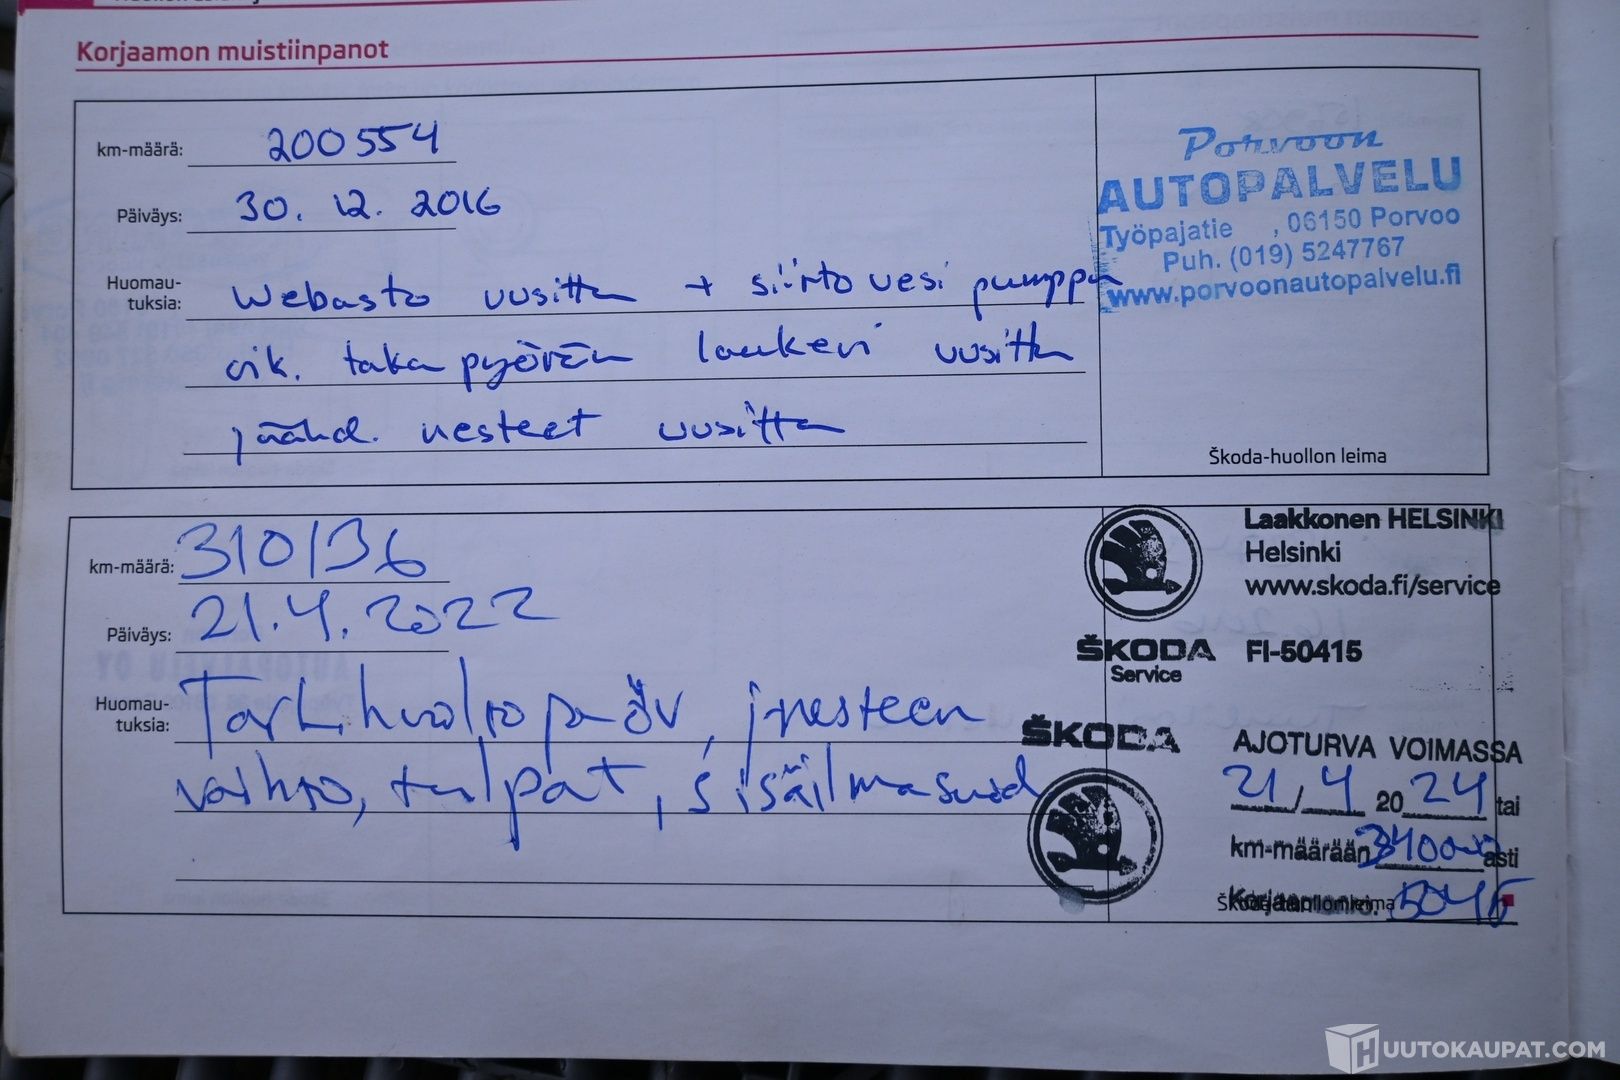 Korjaamon muistiinpanot
km-määrä: 200554
Päiväys: 30. 12. 2016
Huomau-
tuksia: Webasto uusittu + siirto vesi pumppu
oik. taka pyörän laakeri uusittu
jäähd. nesteet uusittu
Porvoon
AUTOPALVELU
Työpajatie , 06150 Porvoo
Puh. (019) 5247767
www.porvoonautopalvelu.fi
Škoda-huollon leima
km-määrä: 310136
Päiväys: 21.4.2022
Huomau-
tuksia: Tark.huolto pa öv, j-nesteen
vaihto, tulpat, sisäilmasuod
Laakkonen HELSINKI
Helsinki
www.skoda.fi/service
ŠKODA FI-50415
Service
ŠKODA
AJOTURVA VOIMASSA
21/4 2024 tai
km-määrään 340000 asti
HUUTOKAUPAT.COM